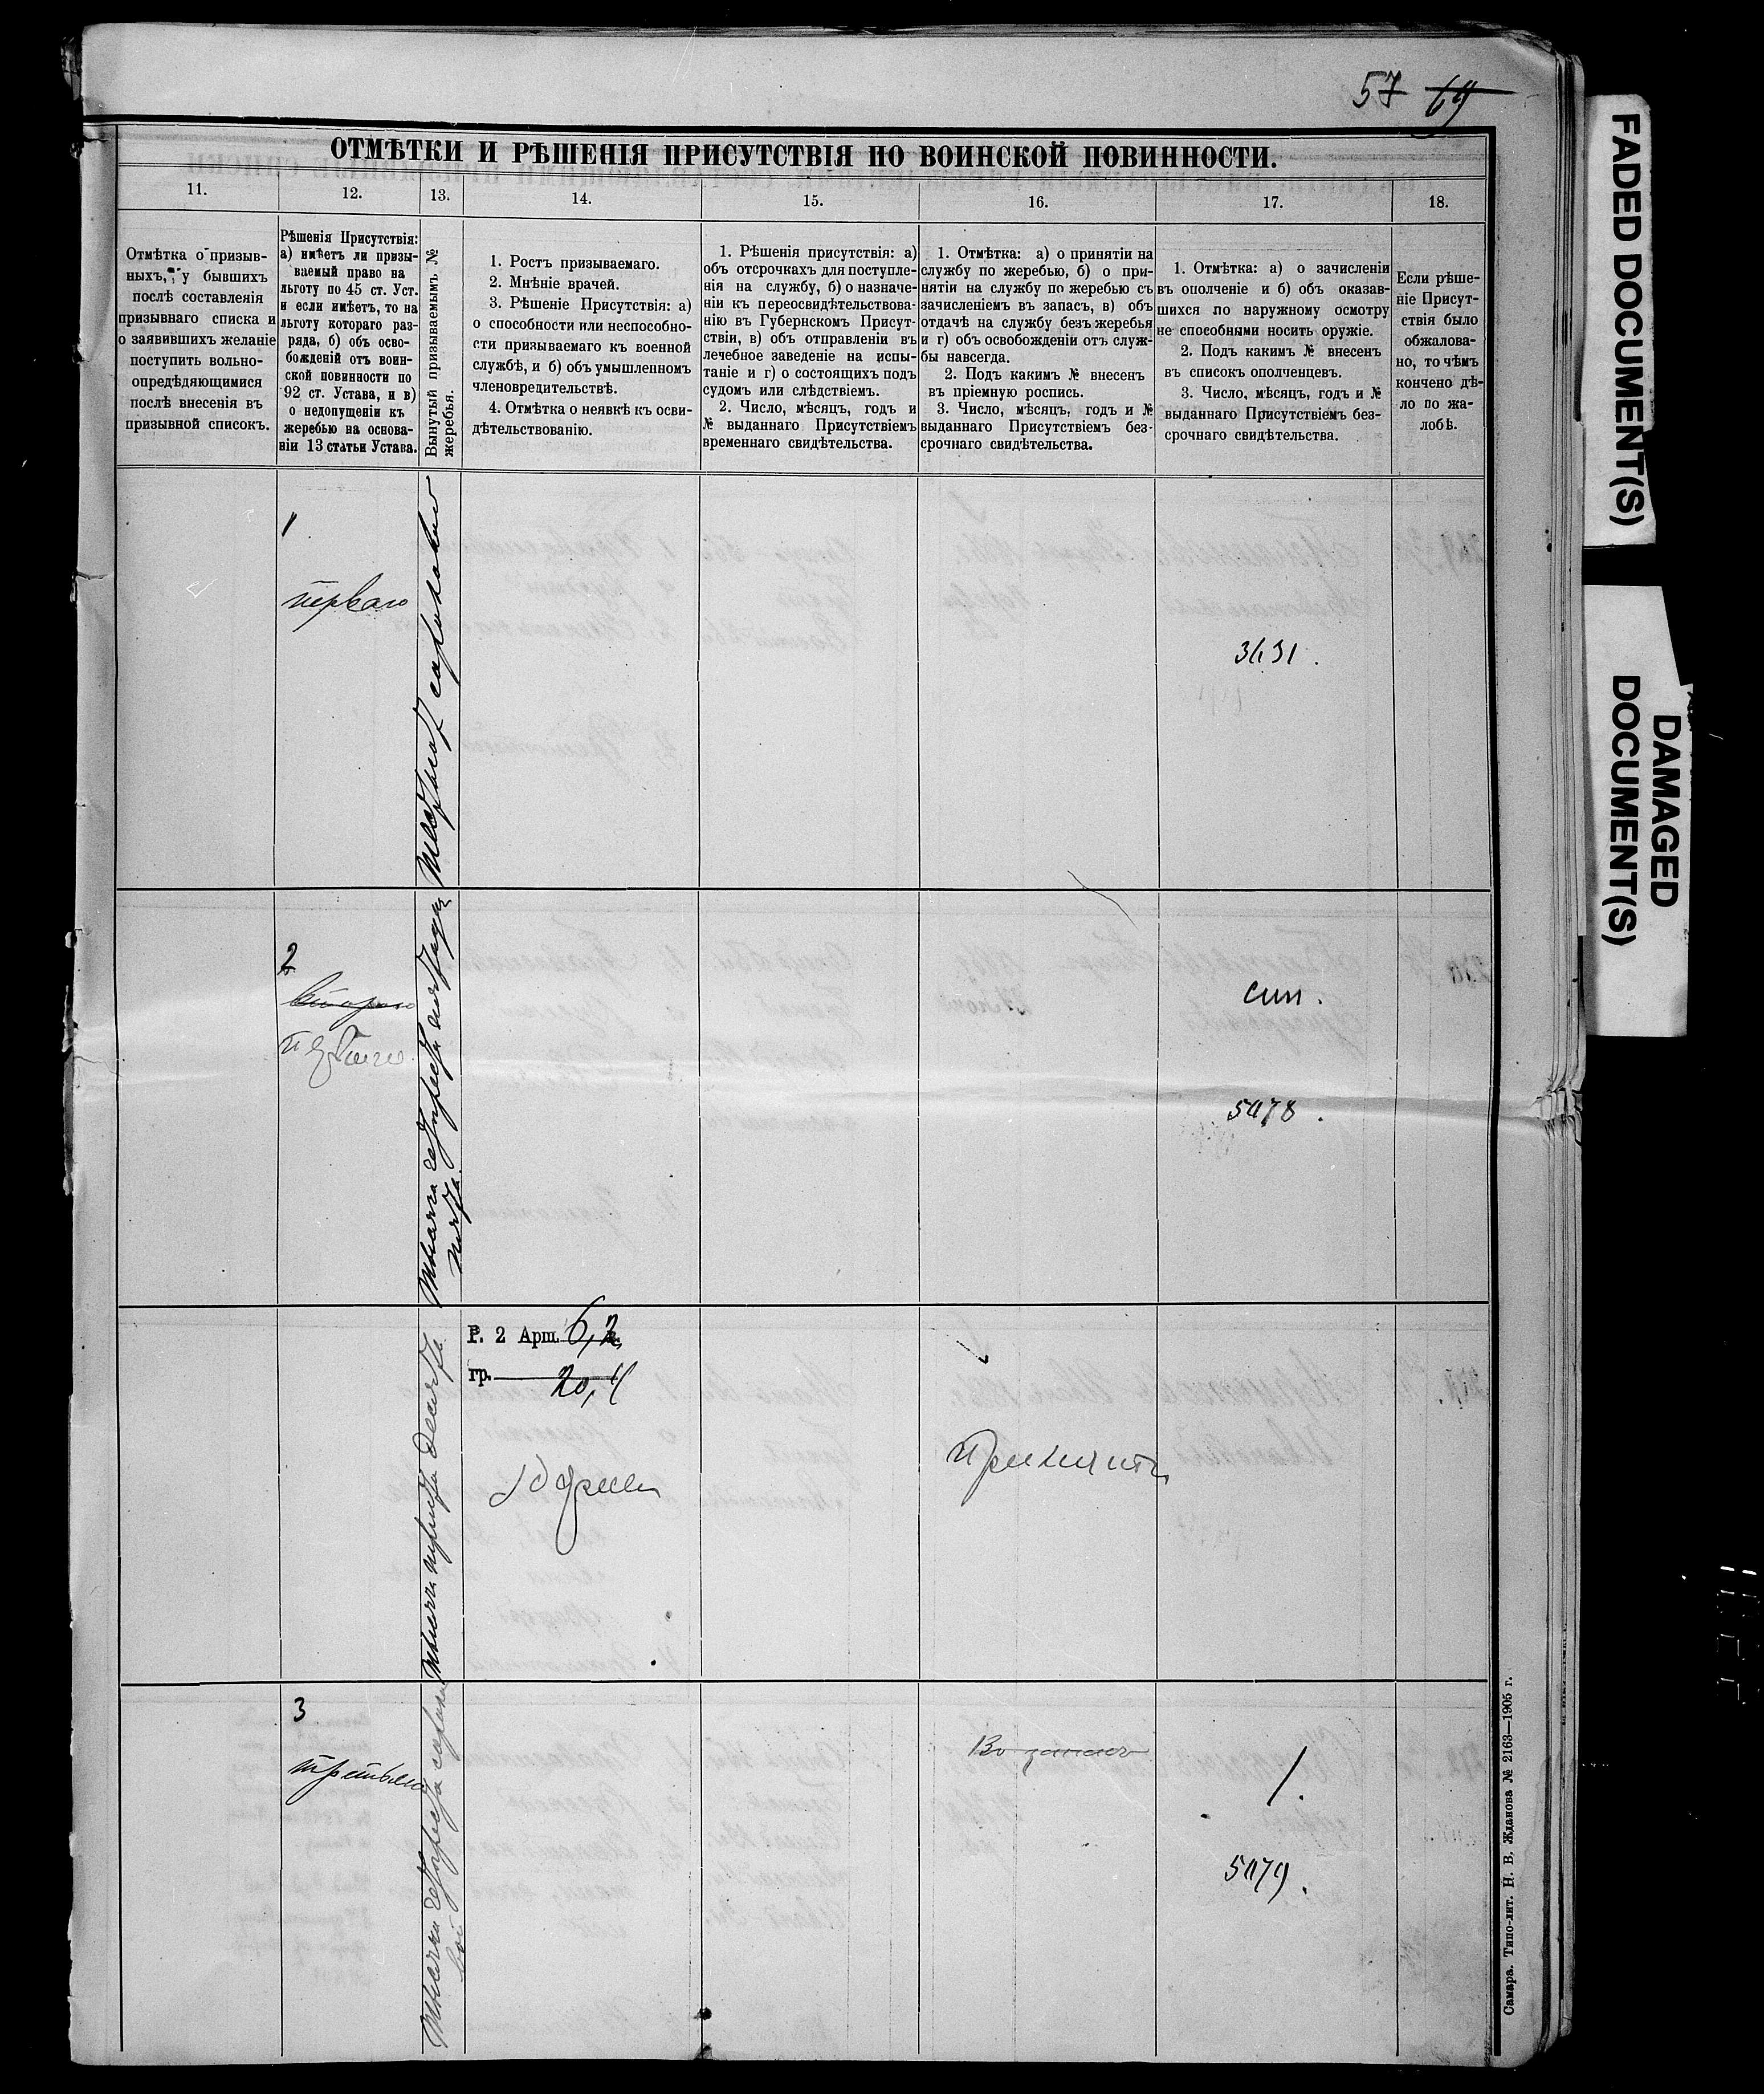 57 69
ОТМѢТКИ И РѢШЕНІЯ ПРИСУТСТВІЯ ПО ВОИНСКОЙ ПОВИННОСТИ.
11.
12.
13.
14.
15.
16.
17.
18.
Отмѣтка о призыв-
ныхъ, у бывшихъ
послѣ составленія
призывнаго списка и
о заявившихъ желаніе
поступить вольно-
опредѣдяющимися
послѣ внесенія въ
призывной списокъ.
Рѣшенія Присутствія:
а) имѣетъ ли призы-
ваемый право на
льготу по 45 ст. Уст.
и если имѣетъ, то на
льготу котораго раз-
ряда, б) объ осво-
божденій отъ воин-
ской повинности по
92 ст. Устава, и в)
о недопущеніи къ
жеребью на основа-
ніи 13 статьи Устава.
Вынутый призываемымъ №
жеребья.
1. Ростъ призываемаго.
2. Мнѣніе врачей.
3. Рѣшеніе Присутствія: а)
о способности или неспособно-
сти призываемаго къ военной
службѣ, и б) объ умышленномъ
членовредительствѣ.
4. Отмѣтка о неявкѣ къ осви-
дѣтельствованію.
1. Рѣшенія присутствія: а)
объ отсрочкахъ для поступле-
нія на службу, б) о назначе-
ніи къ переосвидѣтельствова-
нію въ Губернскомъ Присут-
ствіи, в) объ отправленіи въ
лечебное заведеніе на испы-
таніе и г) о состоящихъ подъ
судомъ или слѣдствіемъ.
2. Число, мѣсяцъ, годъ и
№ выданнаго Присутствіемъ
временнаго свидѣтельства.
1. Отмѣтка: а) о принятіи на
службу по жеребью, б) о при-
нятіи на службу по жеребью съ
зачисленіемъ въ запасъ, в) объ
отдачѣ на службу безъ жеребья
и г) объ освобожденіи отъ служ-
бы навсегда.
2. Подъ какимъ № внесенъ
въ пріемную роспись.
3. Число, мѣсяцъ, годъ и №
выданнаго Присутствіемъ без-
срочнаго свидѣтельства.
1. Отмѣтка: а) о зачисленіи
въ ополченіе и б) объ оказав-
шихся по наружному осмотру
не способными носить оружіе.
2. Подъ какимъ № внесенъ
въ списокъ ополченцевъ.
3. Число, мѣсяцъ, годъ и №
выданнаго Присутствіемъ без-
срочнаго свидѣтельства.
Если рѣше-
ніе Присут-
ствія было
обжалова-
но, то чѣмъ
кончено дѣ-
ло по жа-
лобѣ.
1
перваго
3431.
2
втораго
сип.
5478.
тысяча четыреста
Р. 2 Арш. 6,2
гр. 20,4
Годенъ
Принять
3
третьяго
Въ запасъ
1.
5479.
тысяча четыреста сорокъ
Самара. Типо-лит. Н. В. Жданова № 2163—1905 г.
FADED DOCUMENT(S)
DAMAGED
DOCUMENT(S)